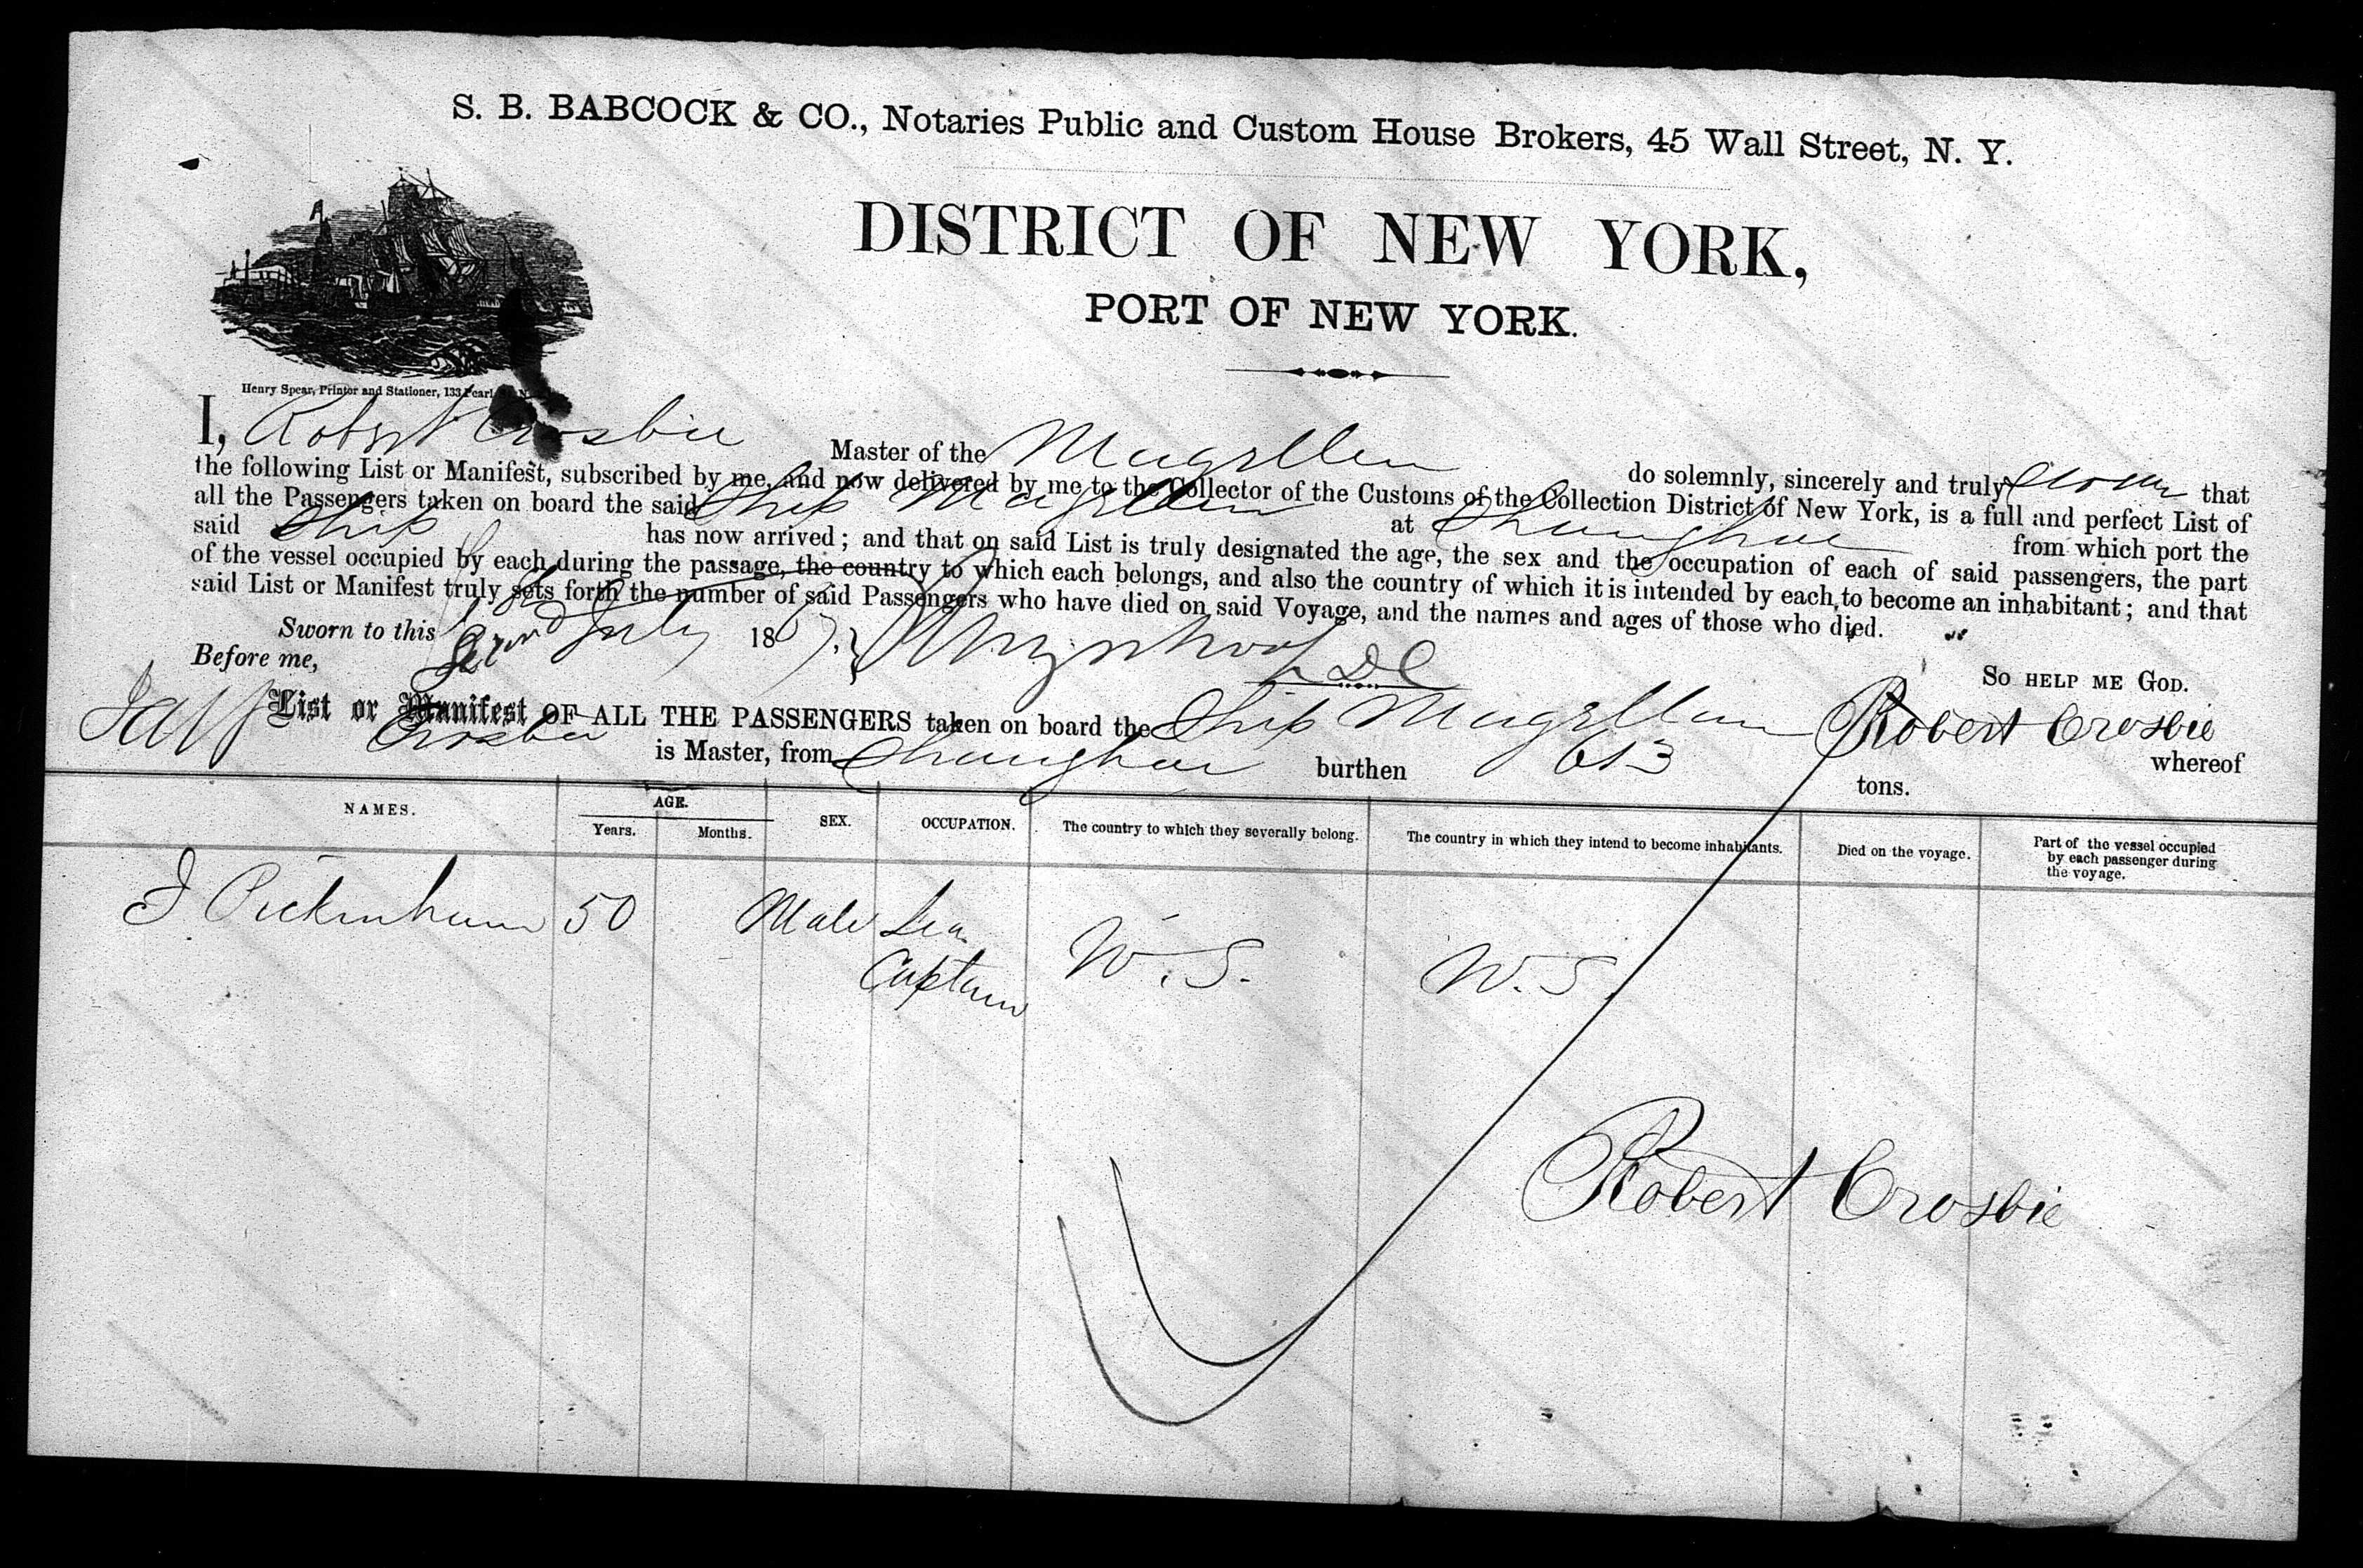 S. B. BABCOCK & CO., Notaries Public and Custom House Brokers, 45 Wall Street, N. Y.
DISTRICT OF NEW YORK,
PORT OF NEW YORK.
Henry Spear, Printer and Stationer, 133 Pearl
I, Robert Crosbie Master of the Magellan do solemnly, sincerely and truly swear that
the following List or Manifest, subscribed by me, and now delivered by me to the Collector of the Customs of the Collection District of New York, is a full and perfect List of
all the Passengers taken on board the said Ship Magellan at Shanghae from which port the
said Ship has now arrived; and that on said List is truly designated the age, the sex and the occupation of each of said passengers, the part
of the vessel occupied by each during the passage, the country to which each belongs, and also the country of which it is intended by each to become an inhabitant; and that
said List or Manifest truly sets forth the number of said Passengers who have died on said Voyage, and the names and ages of those who died.
Sworn to this 22nd July 18
Before me,
So HELP ME GOD.
Robert Crosbie
List or Manifest OF ALL THE PASSENGERS taken on board the Ship Magellan whereof
Crosbie is Master, from Shanghae burthen 613 tons.
NAMES. AGE. Years. Months. SEX. OCCUPATION. The country to which they severally belong. The country in which they intend to become inhabitants. Died on the voyage. Part of the vessel occupied by each passenger during the voyage.
J. Pickenham 50 Male Sea Captain U.S. U.S.
Robert Crosbie